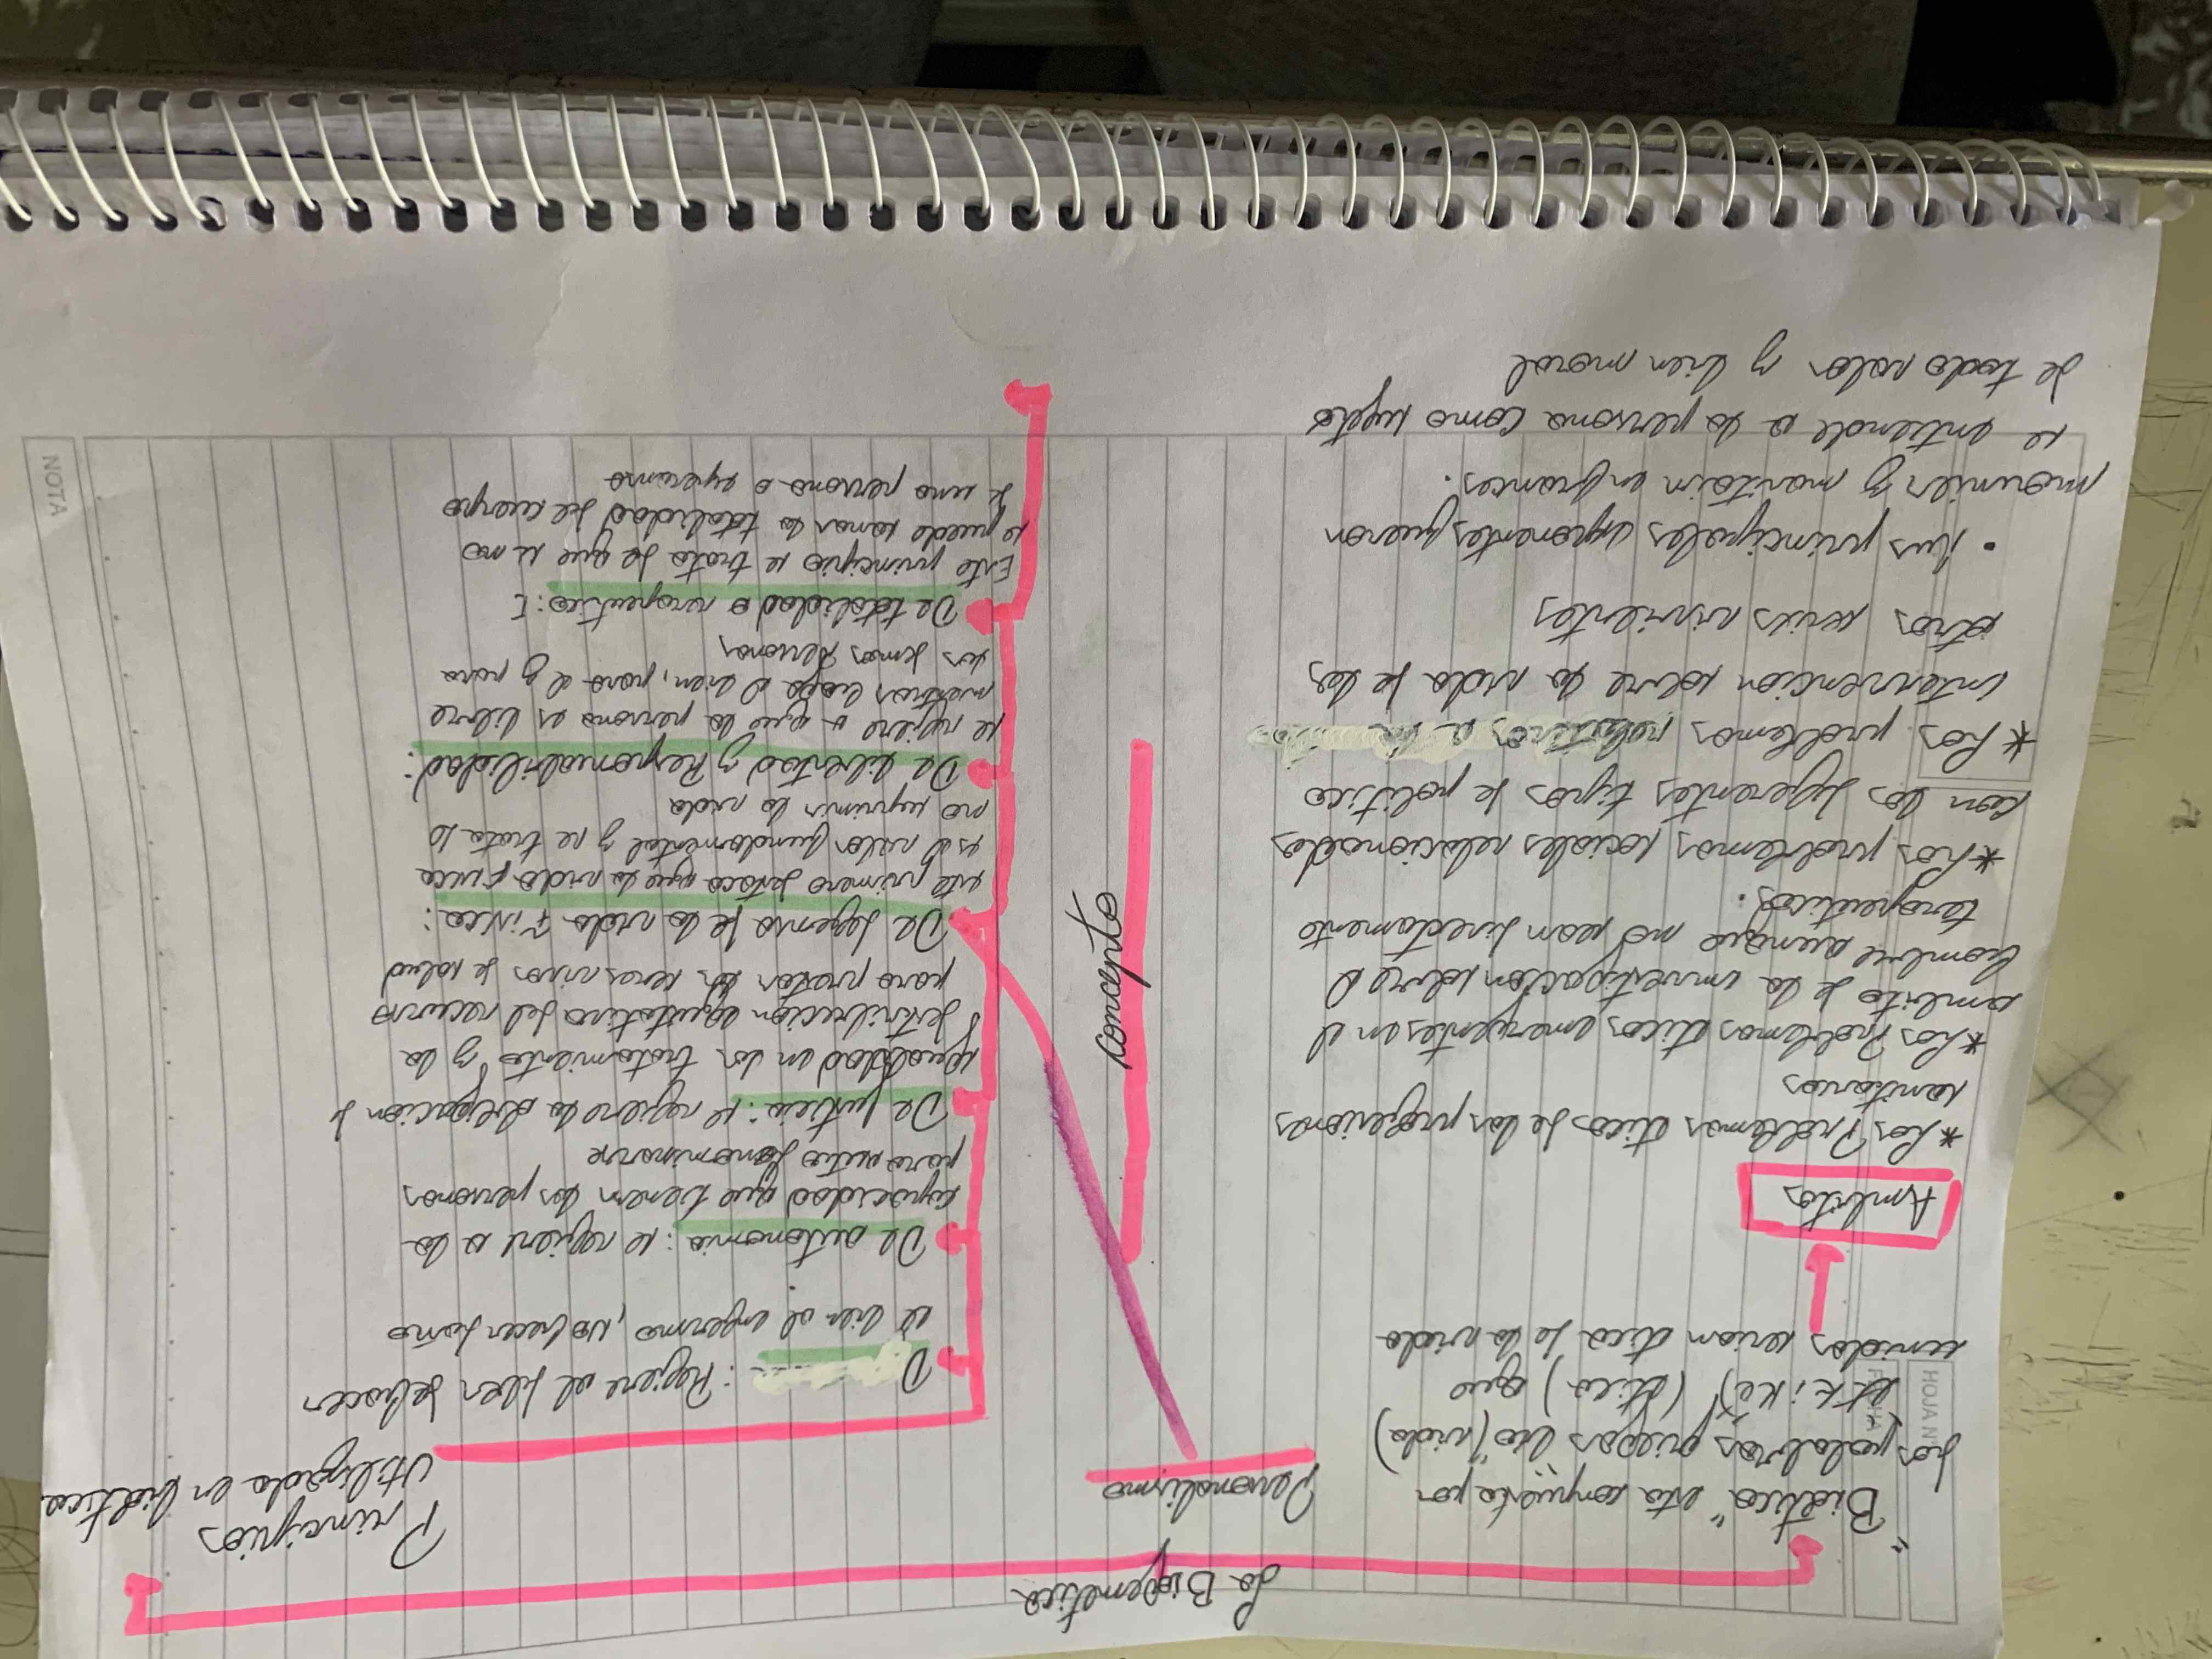 La Biogenetica
"Bioetica" esta compuesta por
las palabras griegas bio "(vida)
"Et k; ke)" (etica) que
unidas serian etica de la vida
Ambitos
*Los Problemas eticos de las profesiones
sanitarias
*Los Problemas eticos emergentes en el
ambito de la investigacion sobre el
hombre aunque no sean directamente
terapeuticos.
*Los problemas sociales relacionados
con los diferentes tipos de politico
*Los problemas relativos a la
intervencion sobre la vida de los
otros seres vivientes
• Sus principales exponentes fueron
mounier y maritain en frances.
se entiende a la persona como sujeto
de todo valor y bien moral
Personalismo
concepto
Principios
Utilizada en bioetica.
D : Refiere al deber de hacer
el bien al enfermo, no hacer daño
De autonomia: se refiere a la
capacidad que tienen las personas
para
De justicia: se refiere la obligacion d
igualdad en los tratamientos y la
distribucion equitativa del recurso
para prestar los servicios de salud
De defensa de la vida Fisica:
este primero destaca que la vida Fisica
es el valor fundamental y se trata d
no suprimir la vida
De libertad y Responsabilidad:
se refiere a que la persona es libre
mientras haga el bien, para el y para
las demas Personas
De totalidad o terapeutico: E
Este principio se trata de que si no
se puede sanar la totalidad del cuerpo
de una persona o
NOTA
HOJA N
FECHA